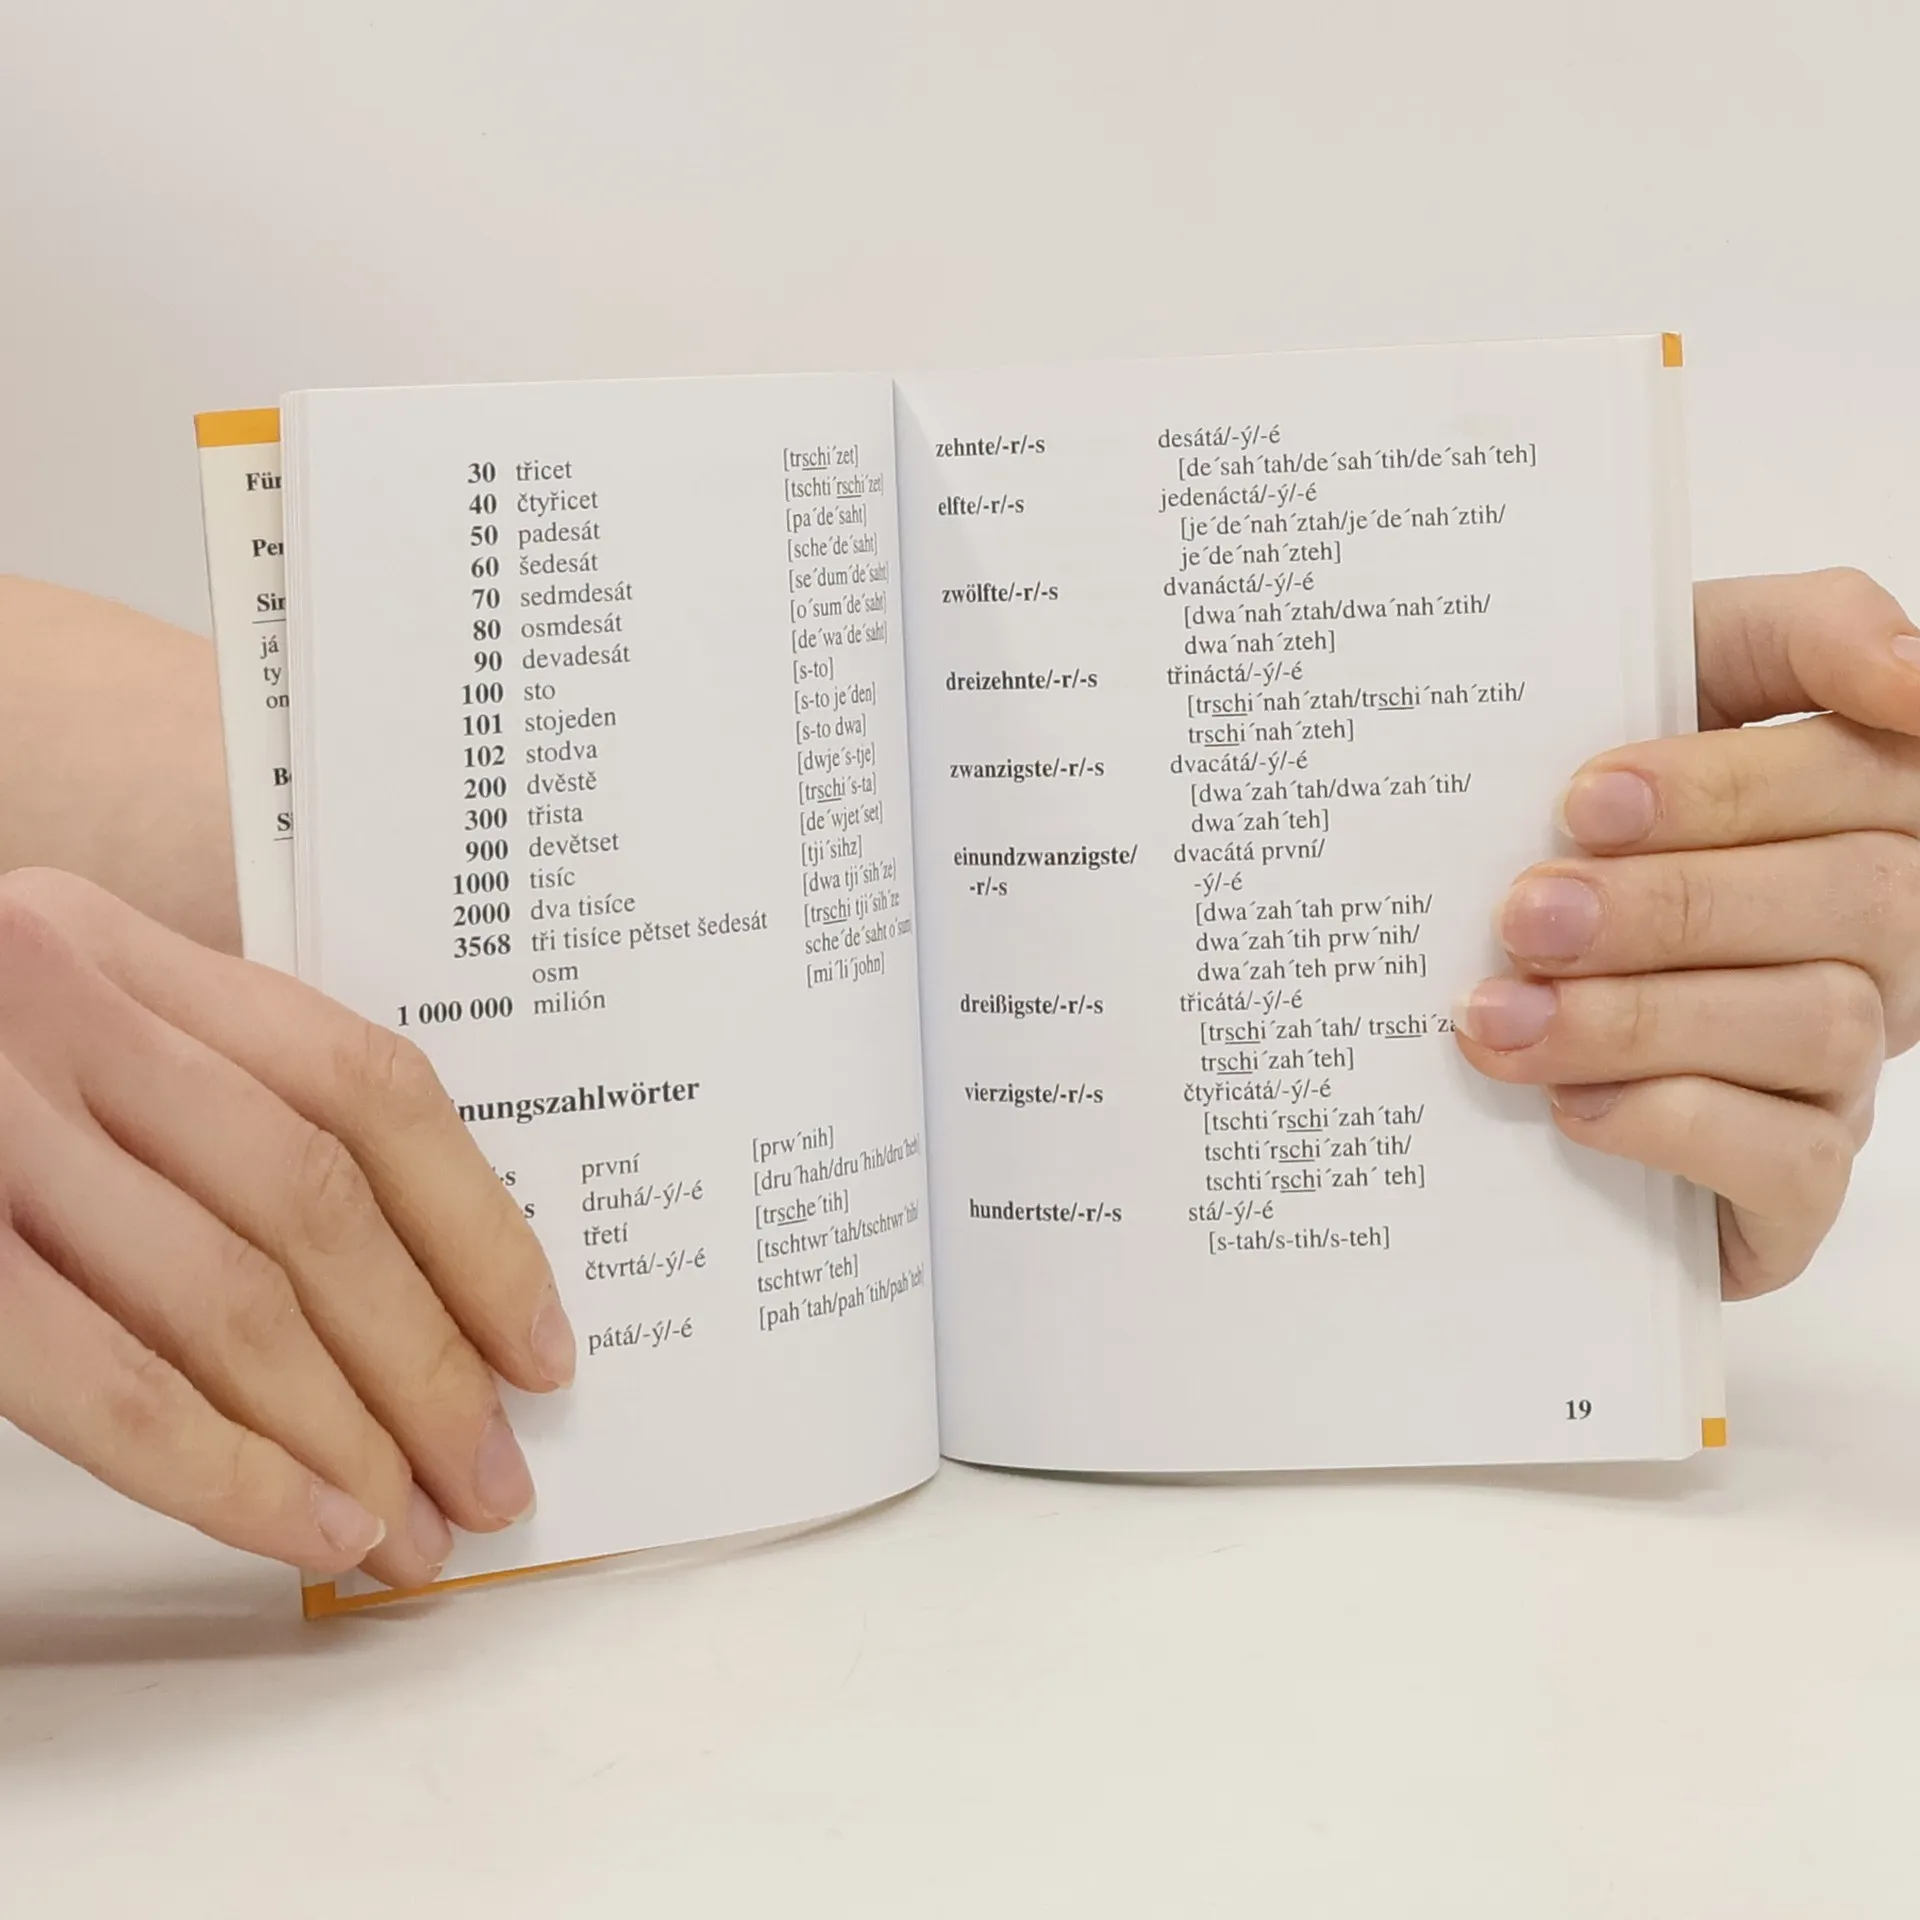 Für
Per
Sin
já
ty
on
B
S
30 třicet [trschi´zet]
40 čtyřicet [tschti´rschi´zet]
50 padesát [pa´de´saht]
60 šedesát [sche´de´saht]
70 sedmdesát [se´dum´de´saht]
80 osmdesát [o´sum´de´saht]
90 devadesát [de´wa´de´saht]
100 sto [s-to]
101 stojeden [s-to je´den]
102 stodva [s-to dwa]
200 dvěstě [dwje´s-tje]
300 třista [trschi´s-ta]
900 devětset [de´wjet´set]
1000 tisíc [tji´sihz]
2000 dva tisíce [dwa tji´sih´ze]
3568 tři tisíce pětset šedesát [trschi tji´sih´ze
osm sche´de´saht o´sum]
1 000 000 milión [mi´li´john]
nungszahlwörter
-s první [prw´nih]
-s druhá/-ý/-é [dru´hah/dru´hih/dru´heh]
třetí [trsche´tih]
čtvrtá/-ý/-é [tschtwr´tah/tschtwr´tih/
tschtwr´teh]
pátá/-ý/-é [pah´tah/pah´tih/pah´teh]
zehnte/-r/-s desátá/-ý/-é
[de´sah´tah/de´sah´tih/de´sah´teh]
elfte/-r/-s jedenáctá/-ý/-é
[je´de´nah´ztah/je´de´nah´ztih/
je´de´nah´zteh]
zwölfte/-r/-s dvanáctá/-ý/-é
[dwa´nah´ztah/dwa´nah´ztih/
dwa´nah´zteh]
dreizehnte/-r/-s třináctá/-ý/-é
[trschi´nah´ztah/trschi´nah´ztih/
trschi´nah´zteh]
zwanzigste/-r/-s dvacátá/-ý/-é
[dwa´zah´tah/dwa´zah´tih/
dwa´zah´teh]
einundzwanzigste/ dvacátá první/
-r/-s -ý/-é
[dwa´zah´tah prw´nih/
dwa´zah´tih prw´nih/
dwa´zah´teh prw´nih]
dreißigste/-r/-s třicátá/-ý/-é
[trschi´zah´tah/ trschi´za
trschi´zah´teh]
vierzigste/-r/-s čtyřicátá/-ý/-é
[tschti´rschi´zah´tah/
tschti´rschi´zah´tih/
tschti´rschi´zah´ teh]
hundertste/-r/-s stá/-ý/-é
[s-tah/s-tih/s-teh]
19